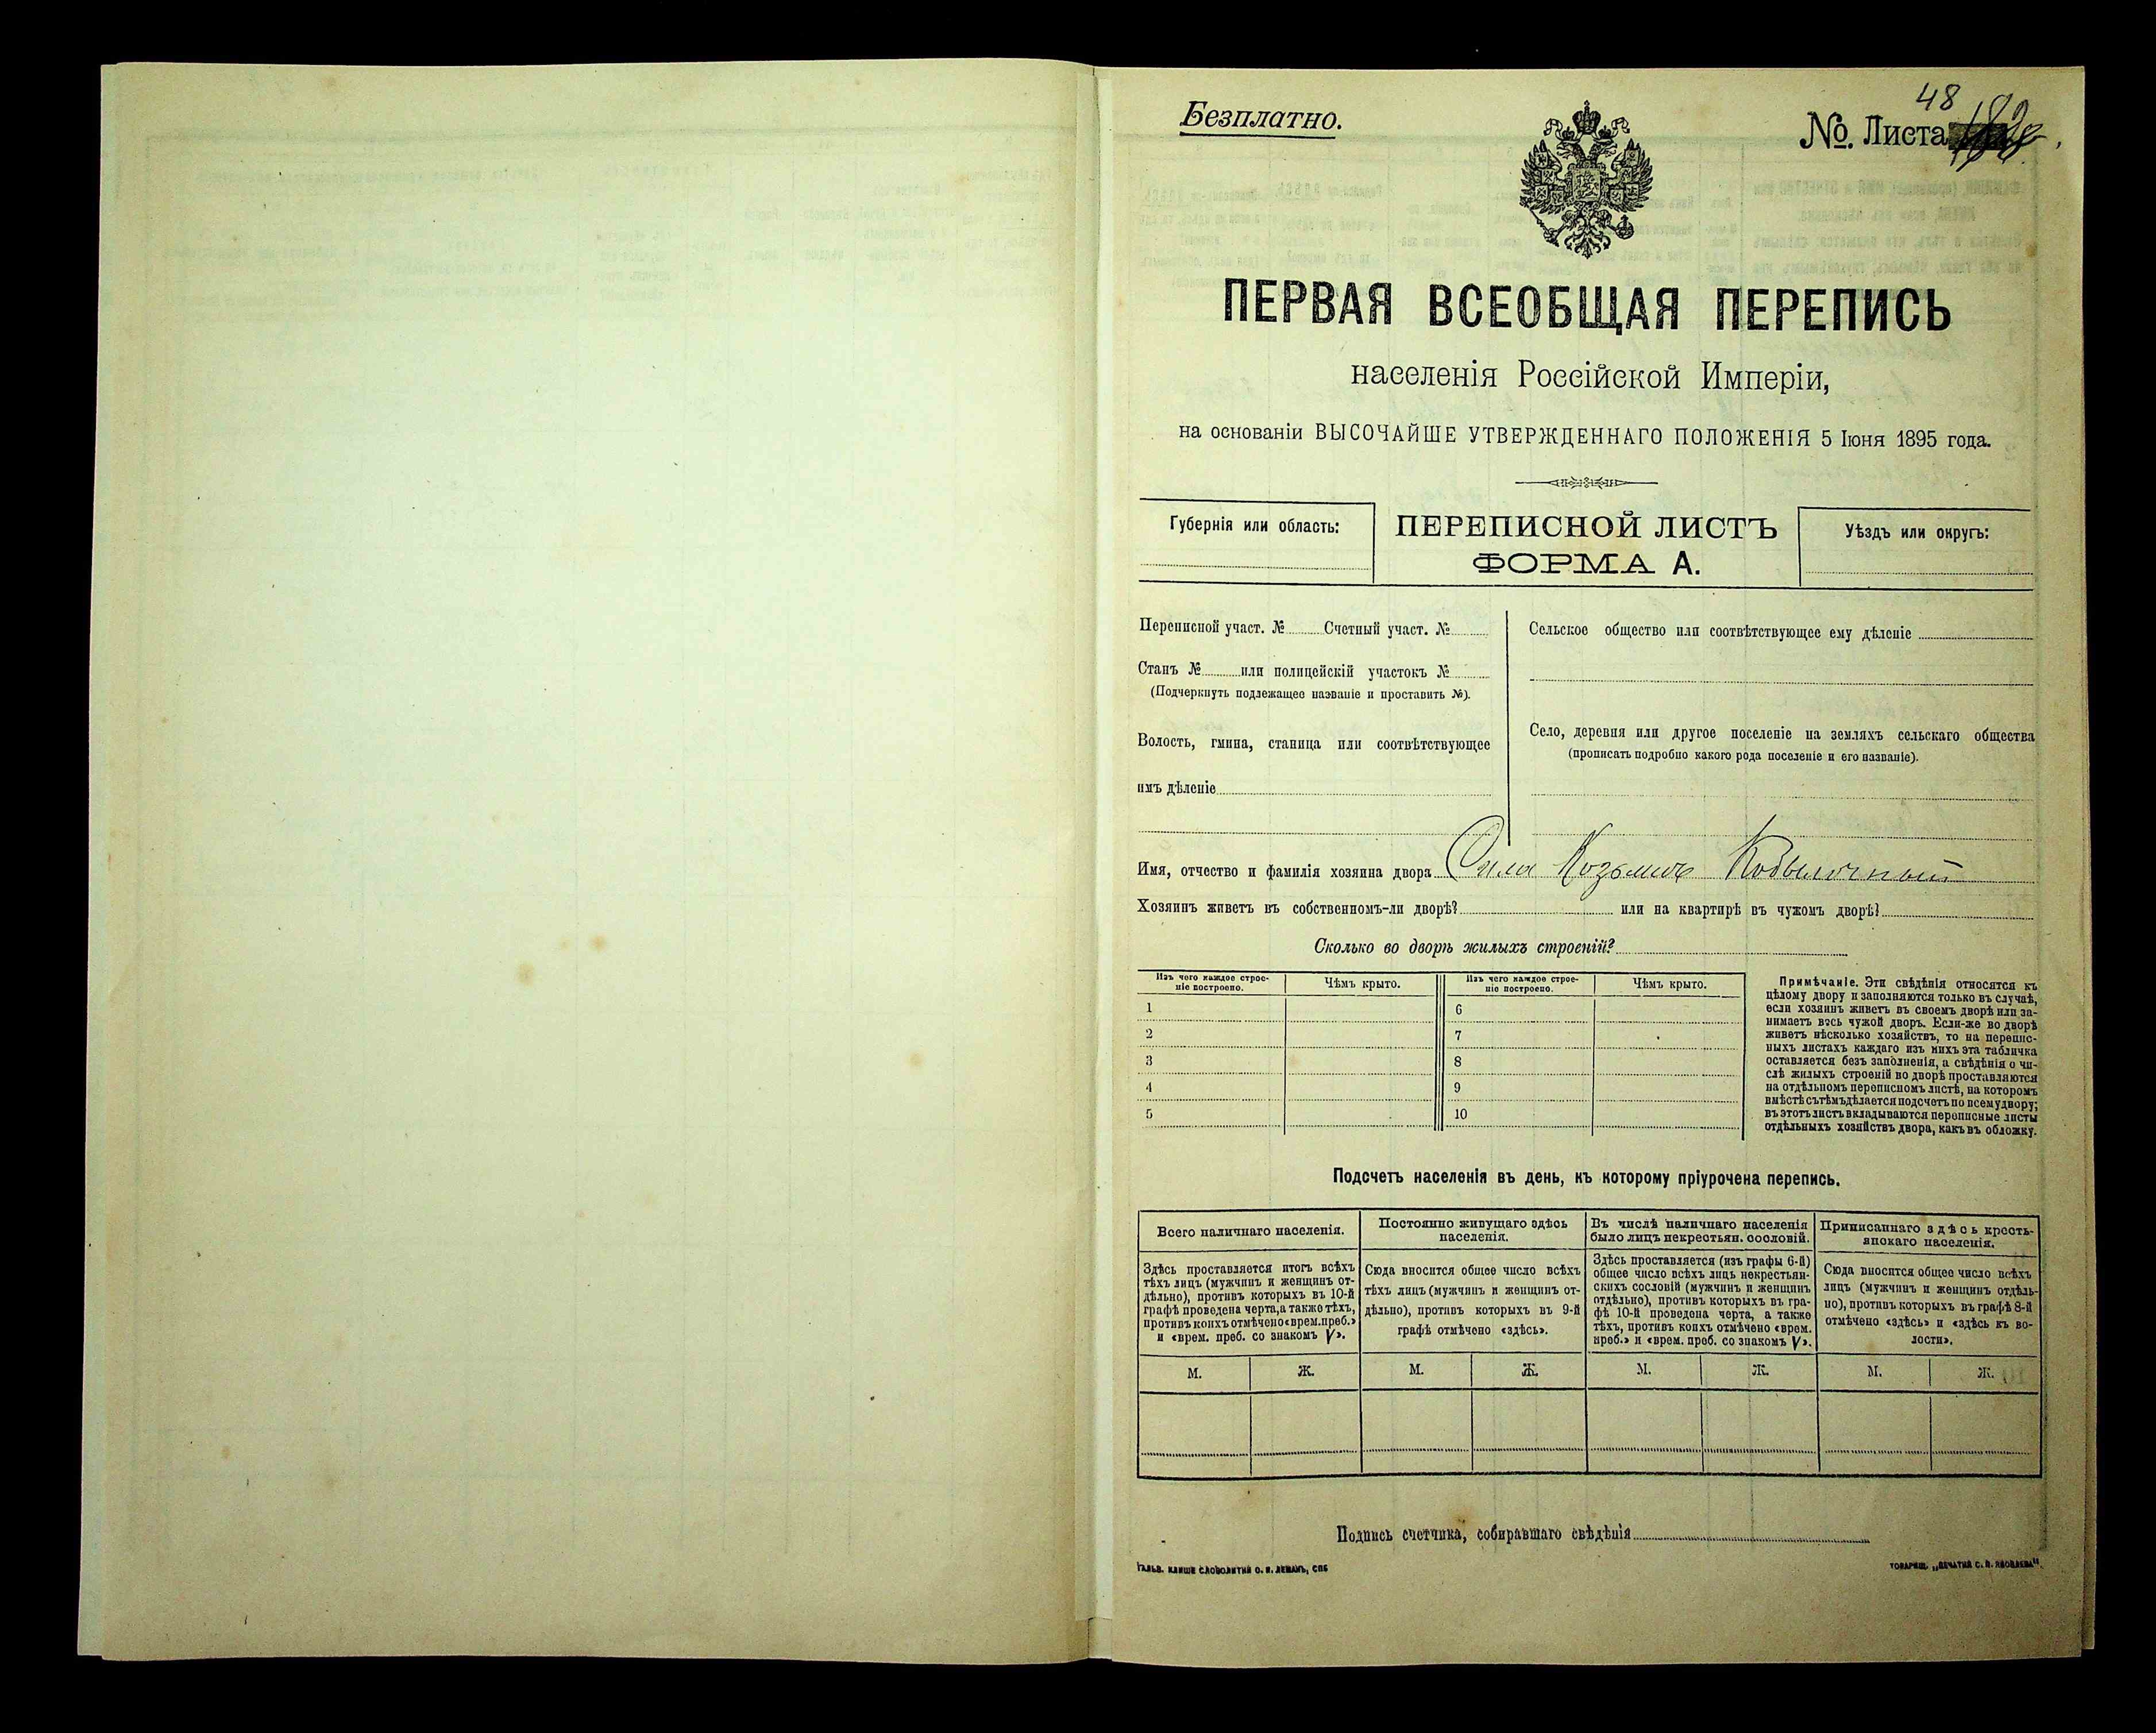 Безплатно.
48
№. Листа
ПЕРВАЯ ВСЕОБЩАЯ ПЕРЕПИСЬ
населенія Россійской Имперіи,
на основаніи ВЫСОЧАЙШЕ УТВЕРЖДЕННАГО ПОЛОЖЕНІЯ 5 Іюня 1895 года.
Губернія или область:
ПЕРЕПИСНОЙ ЛИСТЪ
ФОРМА А.
Уѣздъ или округъ:
Переписной участ. № Счетный участ. №
Станъ № или полицейскій участокъ №
(Подчеркнуть подлежащее названіе и проставить №).
Волость, гмина, станица или соотвѣтствующее
имъ дѣленіе
Сельское общество или соотвѣтствующее ему дѣленіе
Село, деревня или другое поселеніе на земляхъ сельскаго общества
(прописать подробно какого рода поселеніе и его названіе).
Имя, отчество и фамилія хозяина двора Козьмов
Хозяинъ живетъ въ собственномъ-ли дворѣ? или на квартирѣ въ чужомъ дворѣ?
Сколько во дворѣ жилыхъ строеній?
Изъ чего каждое строе-
ніе построено.
Чѣмъ крыто.
Изъ чего каждое строе-
ніе построено.
Чѣмъ крыто.
1
6
2
7
3
8
4
9
5
10
Примѣчаніе. Эти свѣдѣнія относятся къ
цѣлому двору и заполняются только въ случаѣ,
если хозяинъ живетъ въ своемъ дворѣ или за-
нимаетъ весь чужой дворъ. Если-же во дворѣ
живетъ нѣсколько хозяйствъ, то на перепис-
ныхъ листахъ каждаго изъ нихъ эта табличка
оставляется безъ заполненія, а свѣдѣнія о чи-
слѣ жилыхъ строеній во дворѣ проставляются
на отдѣльномъ переписномъ листѣ, на которомъ
вмѣстѣ съ тѣмъ дѣлается подсчетъ по всему двору;
въ этотъ листъ вкладываются переписные листы
отдѣльныхъ хозяйствъ двора, какъ въ обложку.
Подсчетъ населенія въ день, къ которому пріурочена перепись.
Всего наличнаго населенія.
Здѣсь проставляется итогъ всѣхъ
тѣхъ лицъ (мужчинъ и женщинъ от-
дѣльно), противъ которыхъ въ 10-й
графѣ проведена черта, а также тѣхъ,
противъ коихъ отмѣчено «врем. преб.»
и «врем. преб. со знакомъ V».
Постоянно живущаго здѣсь
населенія.
Сюда вносится общее число всѣхъ
тѣхъ лицъ (мужчинъ и женщинъ от-
дѣльно), противъ которыхъ въ 9-й
графѣ отмѣчено «здѣсь».
Въ числѣ наличнаго населенія
было лицъ некрестьян. сословій.
Здѣсь проставляется (изъ графы 6-й)
общее число всѣхъ лицъ некрестьян-
скихъ сословій (мужчинъ и женщинъ
отдѣльно), противъ которыхъ въ гра-
фѣ 10-й проведена черта, а также
тѣхъ, противъ коихъ отмѣчено «врем.
преб.» и «врем. преб. со знакомъ V».
Приписаннаго здѣсь кресть-
янскаго населенія.
Сюда вносится общее число всѣхъ
лицъ (мужчинъ и женщинъ отдѣль-
но), противъ которыхъ въ графѣ 8-й
отмѣчено «здѣсь» и «здѣсь къ во-
лости».
М. Ж. М. Ж. М. Ж. М. Ж.
Подпись счетчика, собиравшаго свѣдѣнія
Гальв. клише словолитни О. И. Леманъ, СПб
Товарищ. „Печатня С. П. Яковлева“.